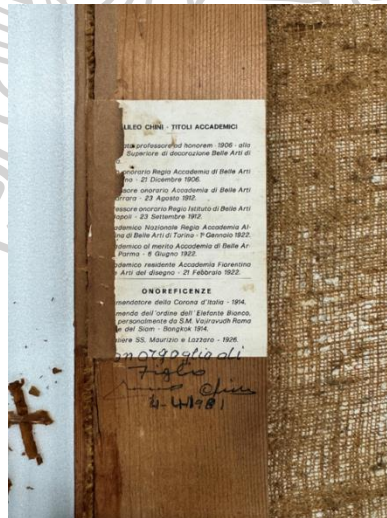 LILEO CHINI - TITOLI ACCADEMICI
professore ad honorem - 1906 - alla
Superiore di decorazione Belle Arti di
onorario Regia Accademia di Belle Arti
no - 21 Dicembre 1906.
ssore onorario Accademia di Belle Arti
arrara - 23 Agosto 1912.
essore onorario Regio Istituto di Belle Arti
apoli - 23 Settembre 1912.
ademico Nazionale Regia Accademia Al-
ina di Belle Arti di Torino - 1º Gennaio 1922.
ademico al merito Accademia di Belle Ar-
Parma - 6 Giugno 1922.
ademico residente Accademia Fiorentina
Arti del disegno - 21 Febbraio 1922.
ONOREFICENZE
mandatore della Corona d'Italia - 1914.
menda dell'ordine dell'Elefante Bianco,
personalmente da S.M. Vajiravudh Rama
del Siam - Bangkok 1914.
aliere SS. Maurizio e Lazzaro - 1926.
di
Figlio
Chini
4-4-1981